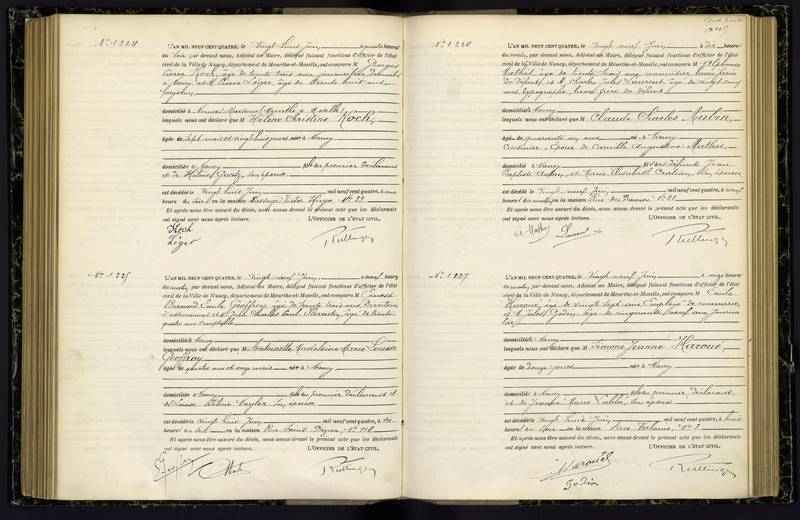 N° 1224
L'AN MIL NEUF CENT QUATRE, le Vingt huit Juin, à quatre heures
du Soir par devant nous, Adjoint au Maire, délégué faisant fonctions d'officier de l'état
civil de la Ville de Nancy, département de Meurthe-et-Moselle, ont comparu M Georges
Pierre Koch, âgé de trente trois ans, journalier Domicilié
à Nancy et M Pierre Léger, âgé de trente huit ans
forgeron
domicilié à
lesquels nous ont déclaré que M Hélène Christine Koch,
âgée de sept mois et vingt huit jours née à Nancy
domiciliée à Nancy fille du premier Déclarant
et de Hélène son épouse
est décédée le Vingt huit Juin mil neuf cent quatre, à
heure du Soir en la maison Passage Victor Hugo N° 22
Et après nous être assuré du décès, nous avons dressé le présent acte que les déclarants
ont signé avec nous après lecture. L'OFFICIER DE L'ÉTAT CIVIL,
Koch
Léger
N° 1225
L'AN MIL NEUF CENT QUATRE, le Vingt neuf Juin, à neuf heures
du matin, par devant nous, Adjoint au Maire, délégué faisant fonctions d'officier de l'état
civil de la Ville de Nancy, département de Meurthe-et-Moselle, ont comparu M Ernest
Bernard Emile Geoffroy, âgé de trente trois ans Directeur
d'assurances et M Jean Charles Paul âgé de trente
quatre ans Comptable
domiciliés à Nancy
lesquels nous ont déclaré que M Antoinette Madeleine Marie Louise
Geoffroy
âgée de quatre ans et onze mois née à Nancy
domiciliée à Nancy fille du premier Déclarant et
de Louise Hélène son épouse
est décédée le Vingt huit Juin mil neuf cent quatre, à
heures du Soir en la maison Rue Saint Dizier, N° 118
Et après nous être assuré du décès, nous avons dressé le présent acte que les déclarants
ont signé avec nous après lecture. L'OFFICIER DE L'ÉTAT CIVIL,
N° 1226
L'AN MIL NEUF CENT QUATRE, le Vingt neuf Juin, à dix heures
du matin, par devant nous, Adjoint au Maire, délégué faisant fonctions d'officier de l'état
civil de la Ville de Nancy, département de Meurthe-et-Moselle, ont comparu M Alphonse
Mathis, âgé de trente trois ans, menuisier beau frère
du Défunt et M Charles Jules Laurent, âgé de vingt cinq
ans, typographe, beau frère du Défunt
domiciliés à Nancy
lesquels nous ont déclaré que M Claude Charles Aubin,
âgé de quarante un ans né à Nancy
Époux de Camille Augustine Mathis.
domicilié à Nancy fils des défunts Jean
Baptiste Aubin, et Marie Elisabeth son épouse
est décédé le Vingt neuf Juin mil neuf cent quatre, à neuf
heures du matin, en la maison Rue des N° 21
Et après nous être assuré du décès, nous avons dressé le présent acte que les déclarants
ont signé avec nous après lecture. L'OFFICIER DE L'ÉTAT CIVIL,
Laurent
N° 1227
L'AN MIL NEUF CENT QUATRE, le Vingt neuf Juin, à onze heures
du matin, par devant nous, Adjoint au Maire, délégué faisant fonctions d'officier de l'état
civil de la Ville de Nancy, département de Meurthe-et-Moselle, ont comparu M Emile
Haroué, âgé de vingt sept ans Employé de commerce,
et M Jules Godin, âgé de cinquante neuf ans Journa
lier
domiciliés à Nancy
lesquels nous ont déclaré que M Simone Jeanne Haroué,
âgée de douze jours née à Nancy
domiciliée à Nancy fille du premier Déclarant
et de Jeanne Marie Labbé, son épouse
est décédée le Vingt huit Juin mil neuf cent quatre, à trois
heures du Soir en la maison Rue N° 3
Et après nous être assuré du décès, nous avons dressé le présent acte que les déclarants
ont signé avec nous après lecture. L'OFFICIER DE L'ÉTAT CIVIL,
Haroué
Godin